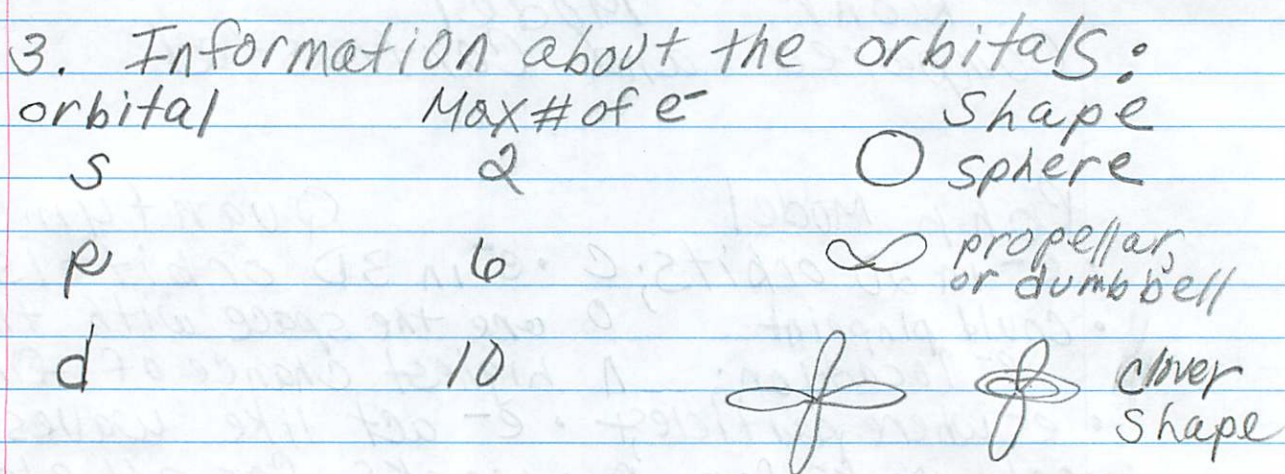 3. Information about the orbitals:
orbital Max # of e⁻ Shape
s 2 sphere
p 6 propellar,
or dumbbell
d 10 clover
shape